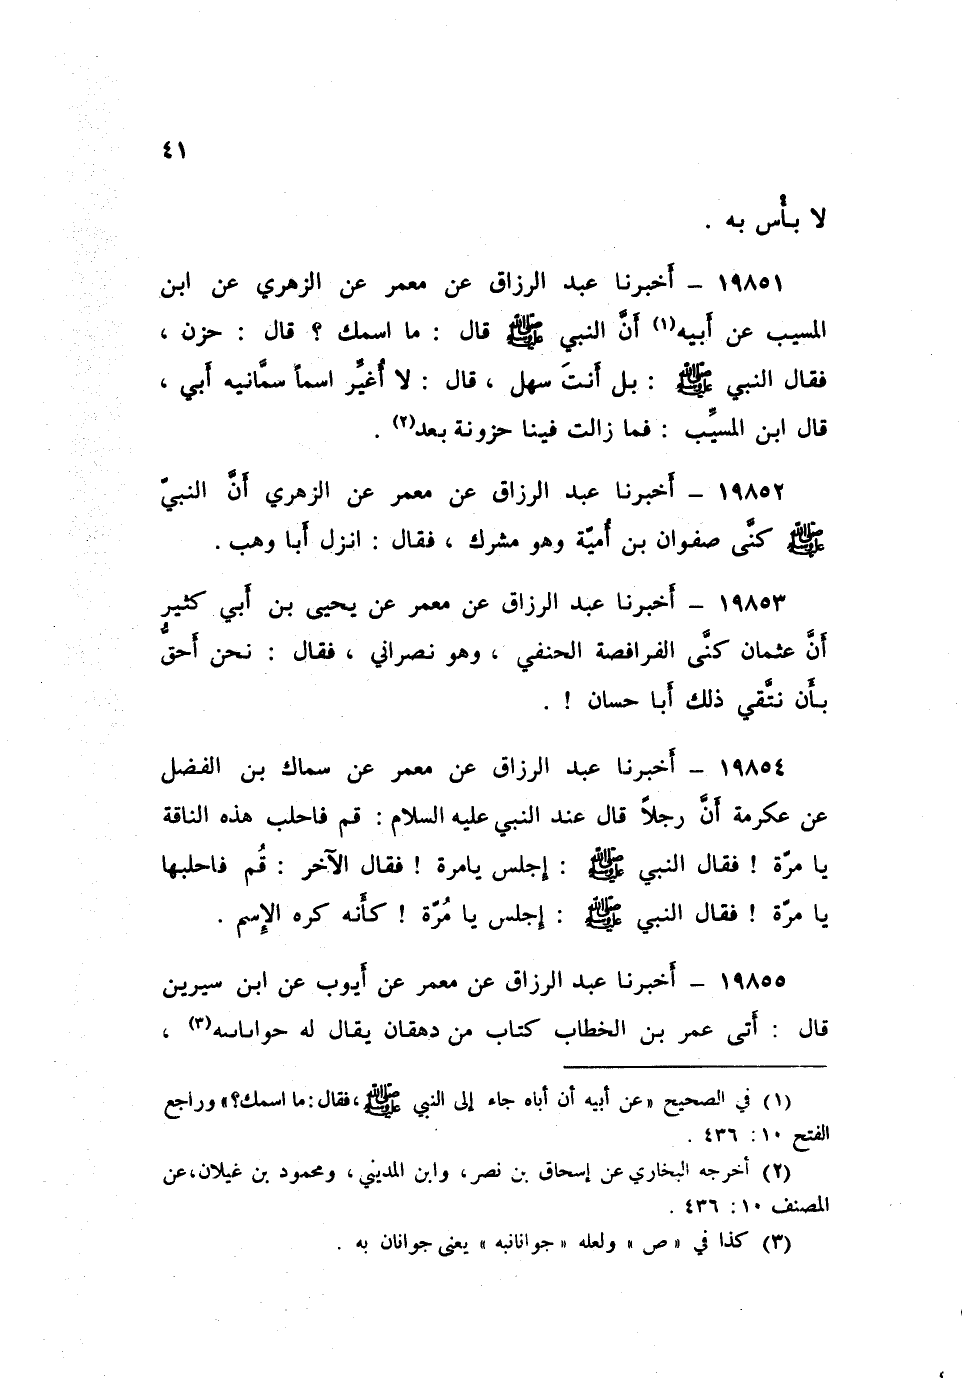 ٤١
لا بأْس به .
١٩٨٥١ – أَخبرنا عبد الرزاق عن معمر عن الزهري عن ابن
المسيب عن أَبيه(١) أَنَّ النبي ﷺ قال : ما اسمك ؟ قال : حزن ،
فقال النبي ﷺ : بل أَنتَ سهل ، قال : لا أُغيِّر اسماً سمَّانيه أَبي ،
قال ابن المسيِّب : فما زالت فينا حزونة بعد(٢) .
١٩٨٥٢ – أَخبرنا عبد الرزاق عن معمر عن الزهري أَنَّ النبيّ
ﷺ كنَّى صفوان بن أُميّة وهو مشرك ، فقال : انزل أَبا وهب .
١٩٨٥٣ – أَخبرنا عبد الرزاق عن معمر عن يحيى بن أَبي كثير
أَنَّ عثمان كنَّى الفرافصة الحنفي ، وهو نصراني ، فقال : نحن أَحقُّ
بأَن نتَّقي ذلك أَبا حسان ! .
١٩٨٥٤ – أَخبرنا عبد الرزاق عن معمر عن سماك بن الفضل
عن عكرمة أَنَّ رجلاً قال عند النبي عليه السلام : قم فاحلب هذه الناقة
يا مرّة ! فقال النبي ﷺ : إجلس يامرة ! فقال الآخر : قُم فاحلبها
يا مرّة ! فقال النبي ﷺ : إجلس يا مُرّة ! كأَنه كره الإِسم .
١٩٨٥٥ – أَخبرنا عبد الرزاق عن معمر عن أَيوب عن ابن سيرين
قال : أَتى عمر بن الخطاب كتاب من دهقان يقال له حواىاىىه(٣) ،
(١) في الصحيح «عن أبيه أن أباه جاء إلى النبي ﷺ ،فقال : ما اسمك؟» وراجع
الفتح ١٠ : ٤٣٦ .
(٢) أخرجه البخاري عن إسحاق بن نصر، وابن المديني ، ومحمود بن غيلان،عن
المصنف ١٠ : ٤٣٦ .
(٣) كذا في «ص» ولعله «جوانانبه» يعني جوانان به .